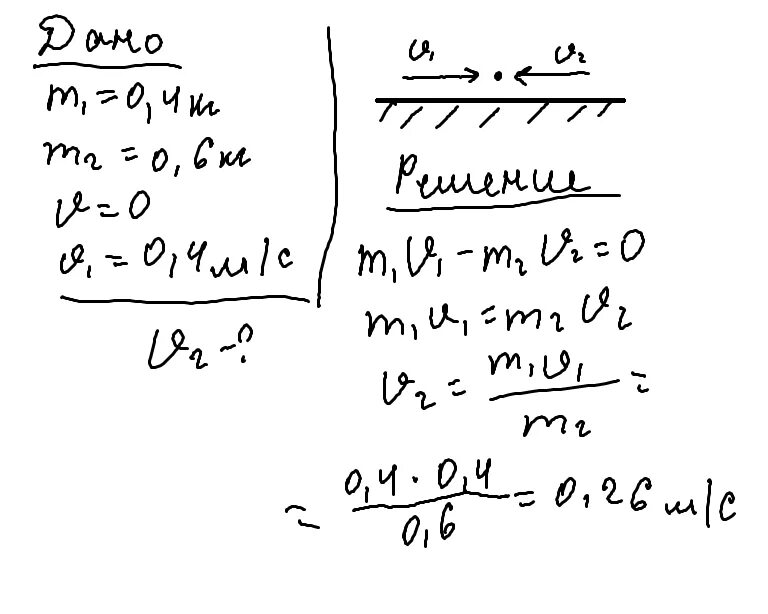 Дано
m₁ = 0,4 кг
m₂ = 0,6 кг
v = 0
v₁ = 0,4 м/с
v₂ - ?
v₁ v₂
Решение
m₁v₁ - m₂v₂ = 0
m₁v₁ = m₂v₂
v₂ = m₁v₁ / m₂ =
= 0,4 · 0,4 / 0,6 = 0,26 м/с